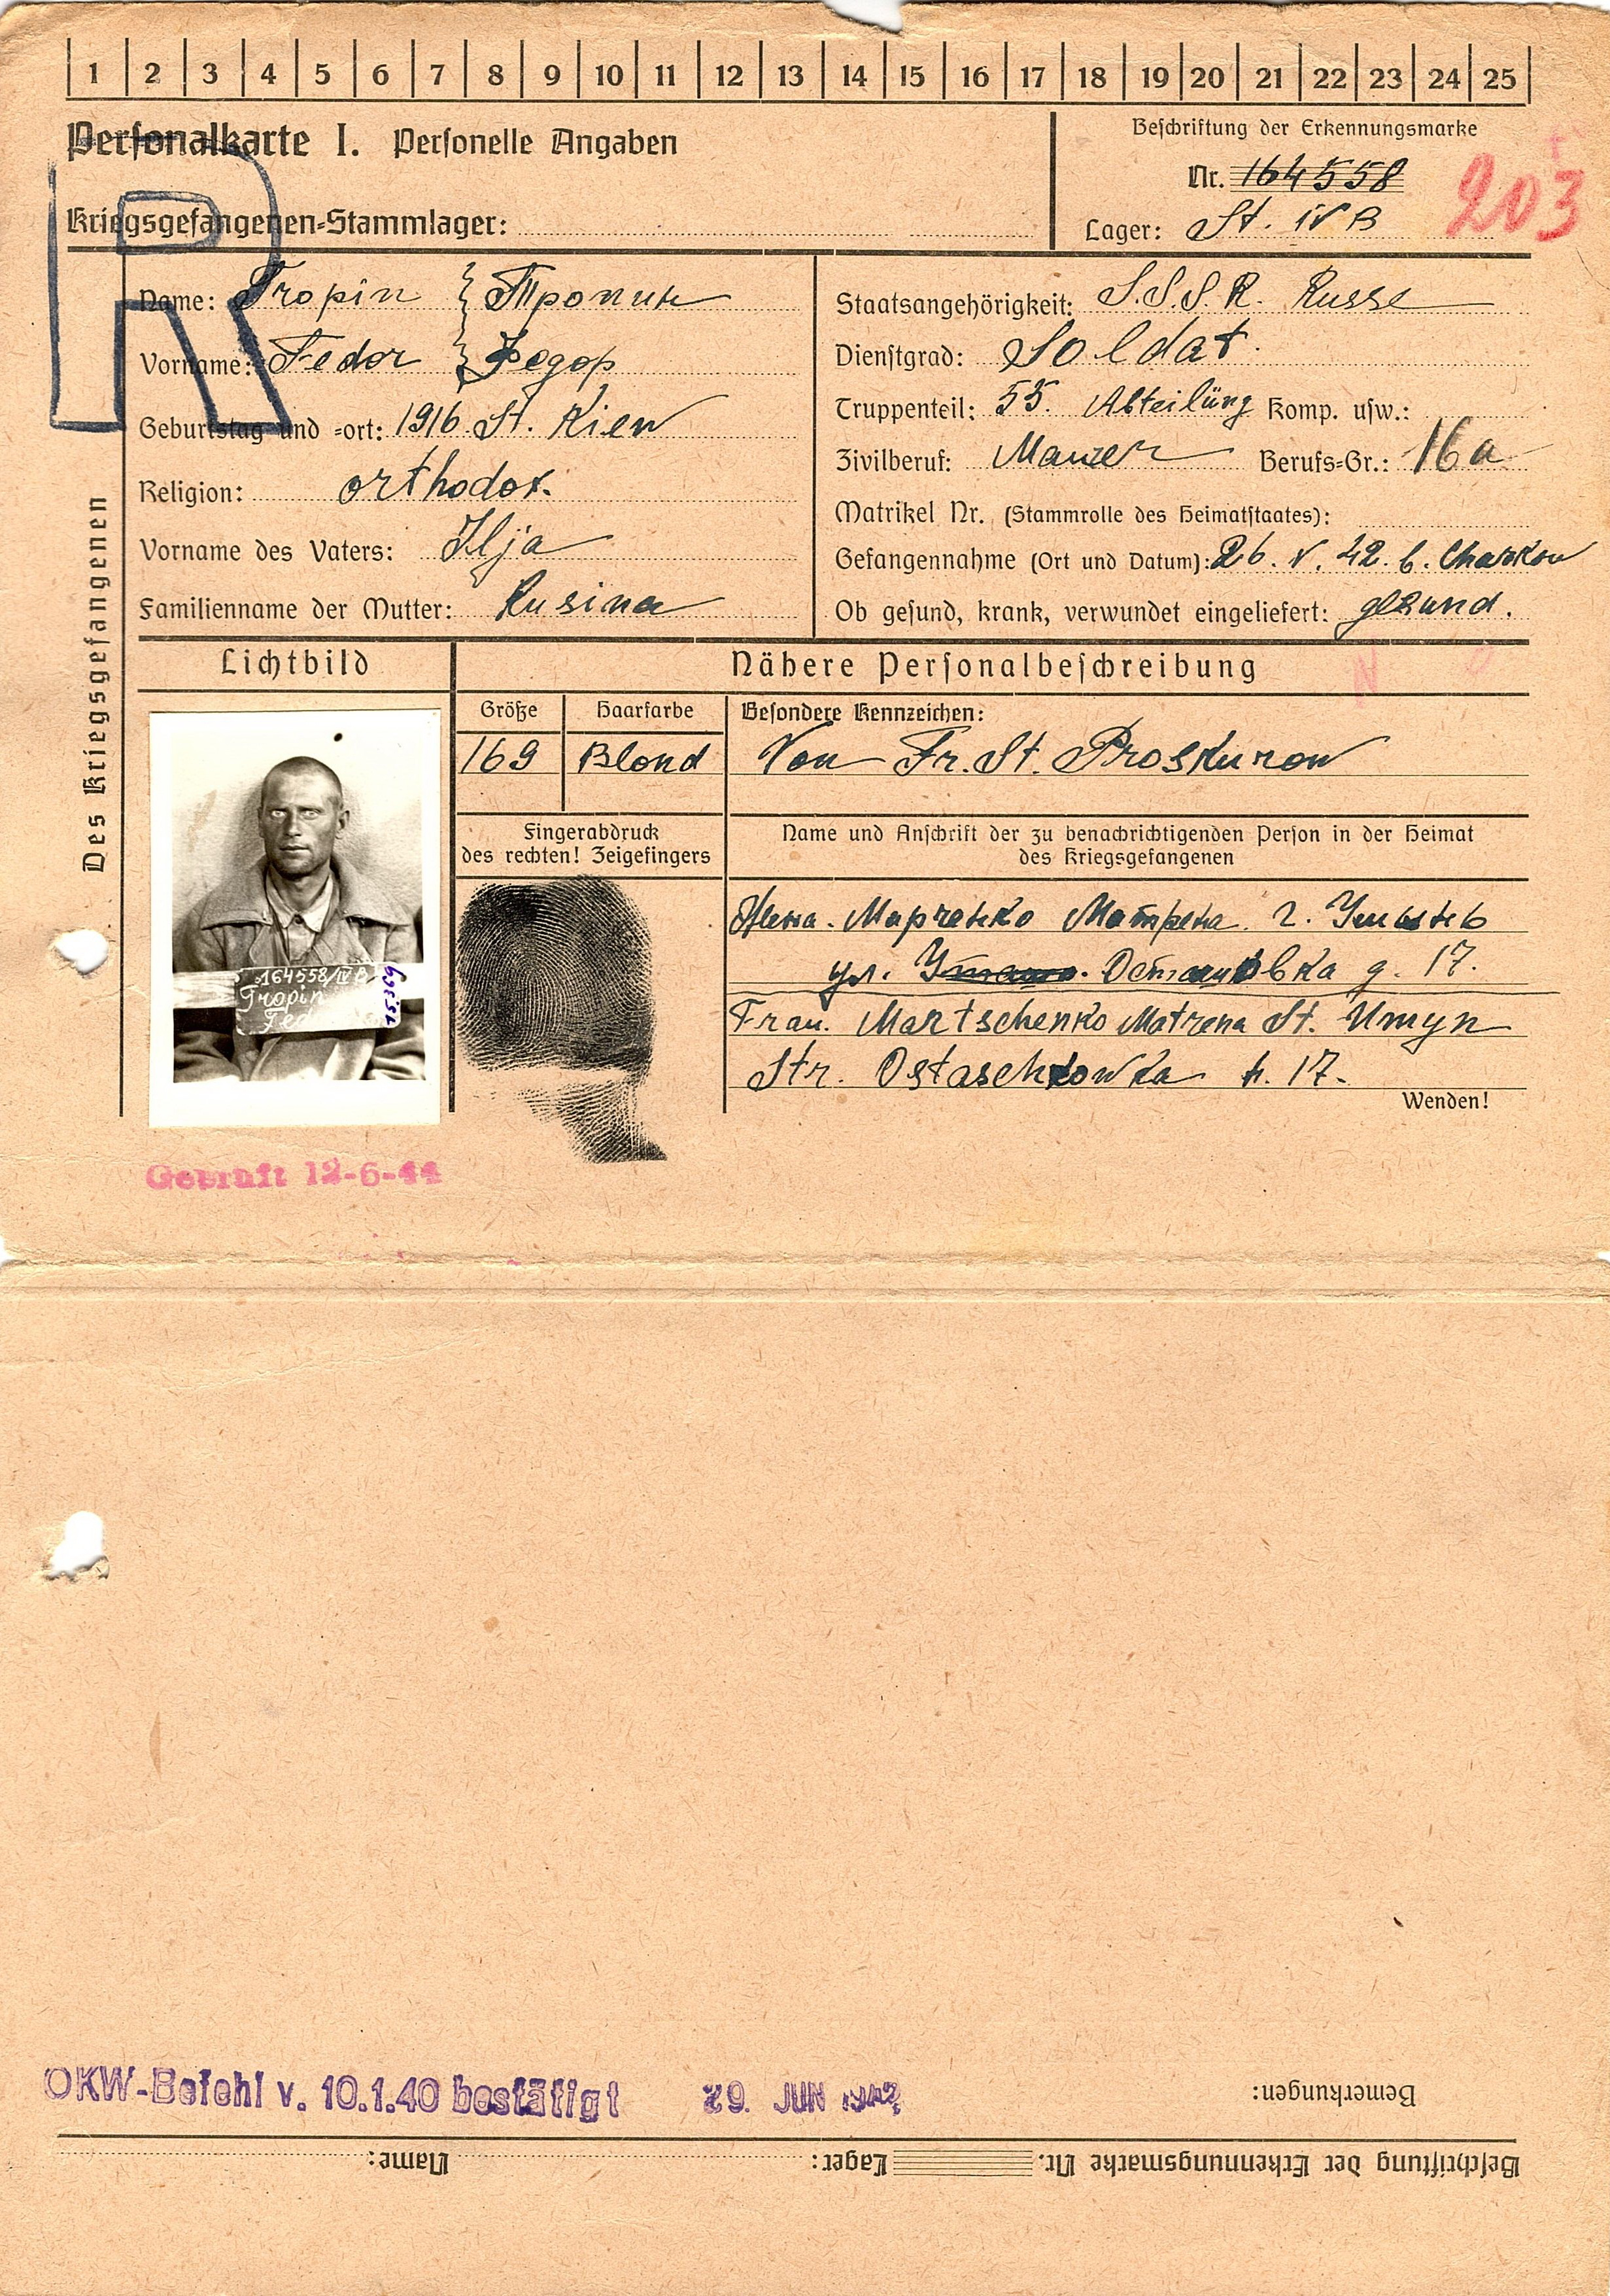 1 2 3 4 5 6 7 8 9 10 11 12 13 14 15 16 17 18 19 20 21 22 23 24 25
Personalkarte I. Personelle Angaben
Beschriftung der Erkennungsmarke
Nr. 164558
203
Kriegsgefangenen-Stammlager:
Lager: St. IV B
R
Des Kriegsgefangenen
Name: Tropin } Тропин
Vorname: Fedor } Федор
Geburtstag und -ort: 1916 St. Kiew
Religion: orthodox.
Vorname des Vaters: Ilja
Familienname der Mutter: Kusina
Staatsangehörigkeit: S.S.S.R. Russe
Dienstgrad: Soldat
Truppenteil: 55. Abteilüng Komp. usw.:
Zivilberuf: Maurer Berufs-Gr.: 16a
Matrikel Nr. (Stammrolle des Heimatstaates):
Gefangennahme (Ort und Datum): 26. V. 42. b. Charkow
Ob gesund, krank, verwundet eingeliefert: gesund.
Lichtbild
Nähere Personalbeschreibung
Größe
169
Haarfarbe
Blond
Besondere Kennzeichen:
Von Fr. St. Proskurow
Fingerabdruck
des rechten! Zeigefingers
Name und Anschrift der zu benachrichtigenden Person in der Heimat
des Kriegsgefangenen
Жена. Марченко Матрена. г.
ул. д. 17.
Frau. Martschenko Matrena St. Umyn
Str. Ostaschkowka h. 17.
Wenden!
164558/IV B
Tropin
Fed
15369
Geprüft 12-6-44
OKW-Befehl v. 10.1.40 bestätigt 29. JUN 1942
Bemerkungen:
Beschriftung der Erkennungsmarke Nr. Lager: Name: